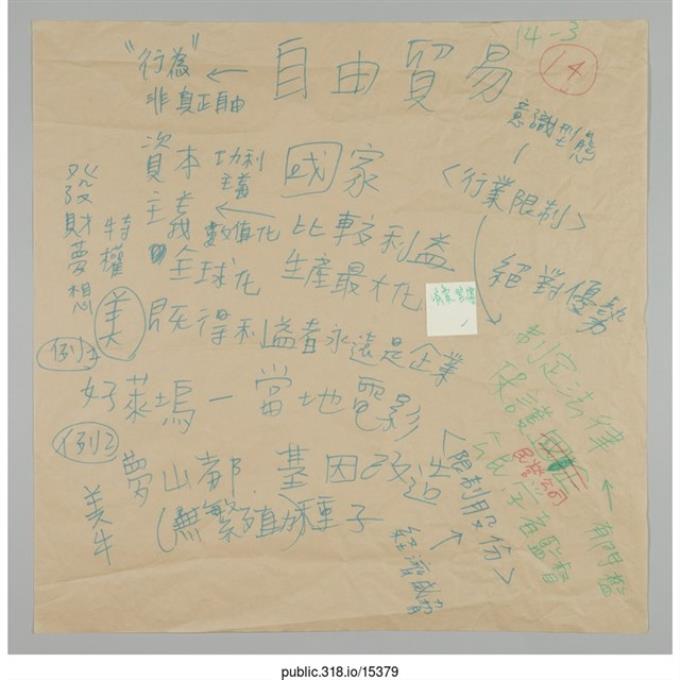 14-3
14
"行為" ← 自由貿易
非真正自由
意識型態
資本主義
功利主義
國家
<行業限制>
數值化 ← 比較利益
發財夢想
特權
全球化 生產最大化
絕對優勢
美
既得利益者永遠是企業
例1
好萊塢－當地電影
制定法律
保護
民營公司
例2
夢山都.基因改造
(無繁殖助種子
<限制股份>
美牛
有門檻
public.318.io/15379